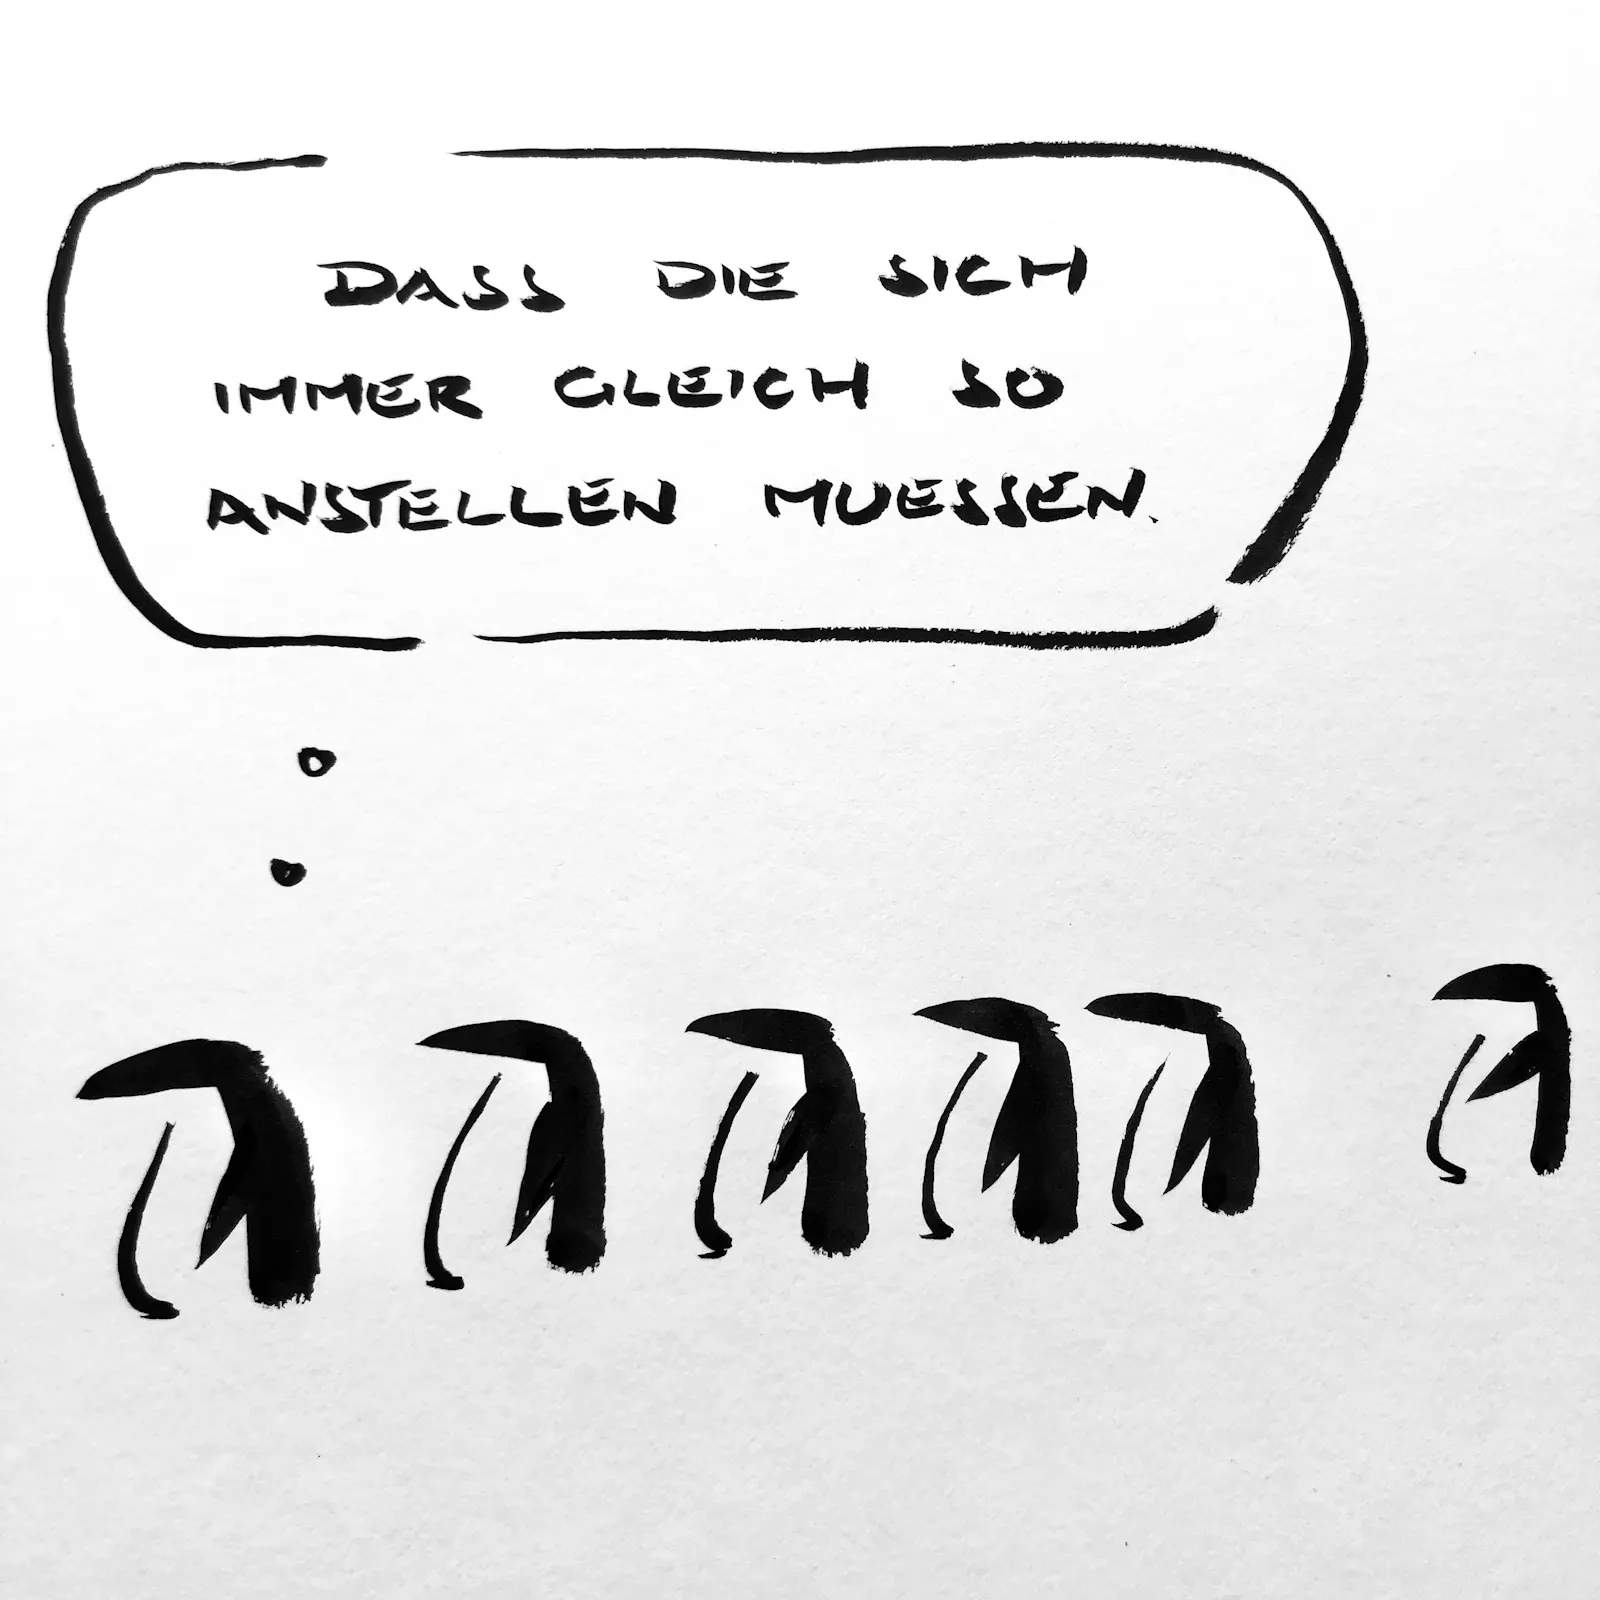 DASS DIE SICH
IMMER GLEICH SO
ANSTELLEN MUESSEN.